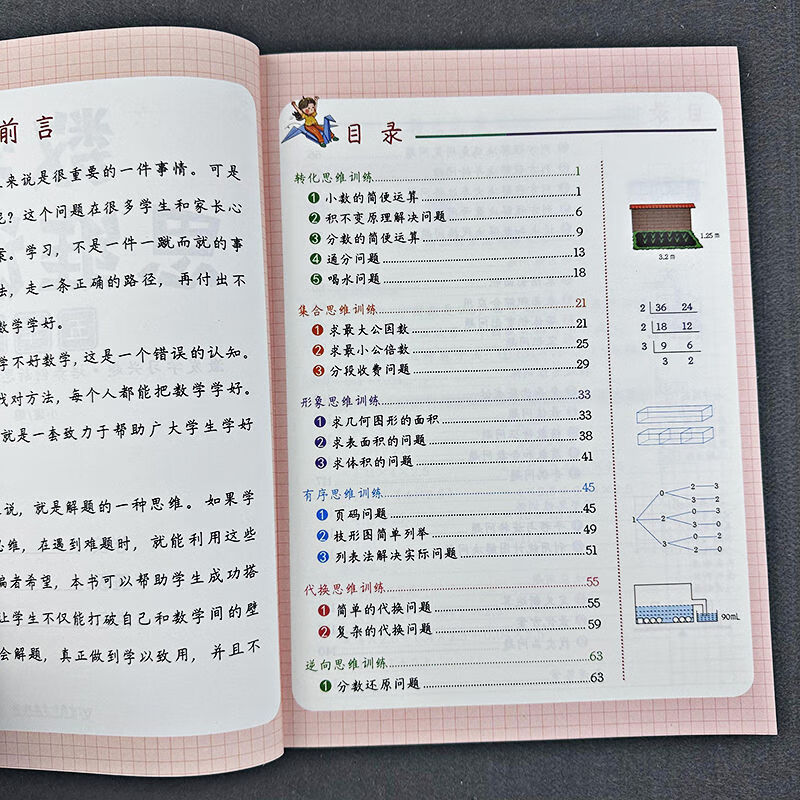 前言
来说是很重要的一件事情。可是
呢？这个问题在很多学生和家长心
案。学习，不是一件一蹴而就的事
法，走一条正确的路径，再付出不
数学学好。
学不好数学，这是一个错误的认知。
找对方法，每个人都能把数学学好。
就是一套致力于帮助广大学生学好
说，就是解题的一种思维。如果学
思维，在遇到难题时，就能利用这些
编者希望，本书可以帮助学生成功搭
让学生不仅能打破自己和数学间的壁
会解题，真正做到学以致用，并且不
目录
转化思维训练 1
1 小数的简便运算 1
2 积不变原理解决问题 6
3 分数的简便运算 9
4 通分问题 13
5 喝水问题 18
集合思维训练 21
1 求最大公因数 21
2 求最小公倍数 25
3 分段收费问题 29
形象思维训练 33
1 求几何图形的面积 33
2 求表面积的问题 38
3 求体积的问题 41
有序思维训练 45
1 页码问题 45
2 枝形图简单列举 49
3 列表法解决实际问题 51
代换思维训练 55
1 简单的代换问题 55
2 复杂的代换问题 59
逆向思维训练 63
1 分数还原问题 63
1.25 m
3.2 m
2 36 24
2 18 12
3 9 6
3 2
0 2 3
3 2
0 3
1 2 3 0
3 0 2
2 0
90mL